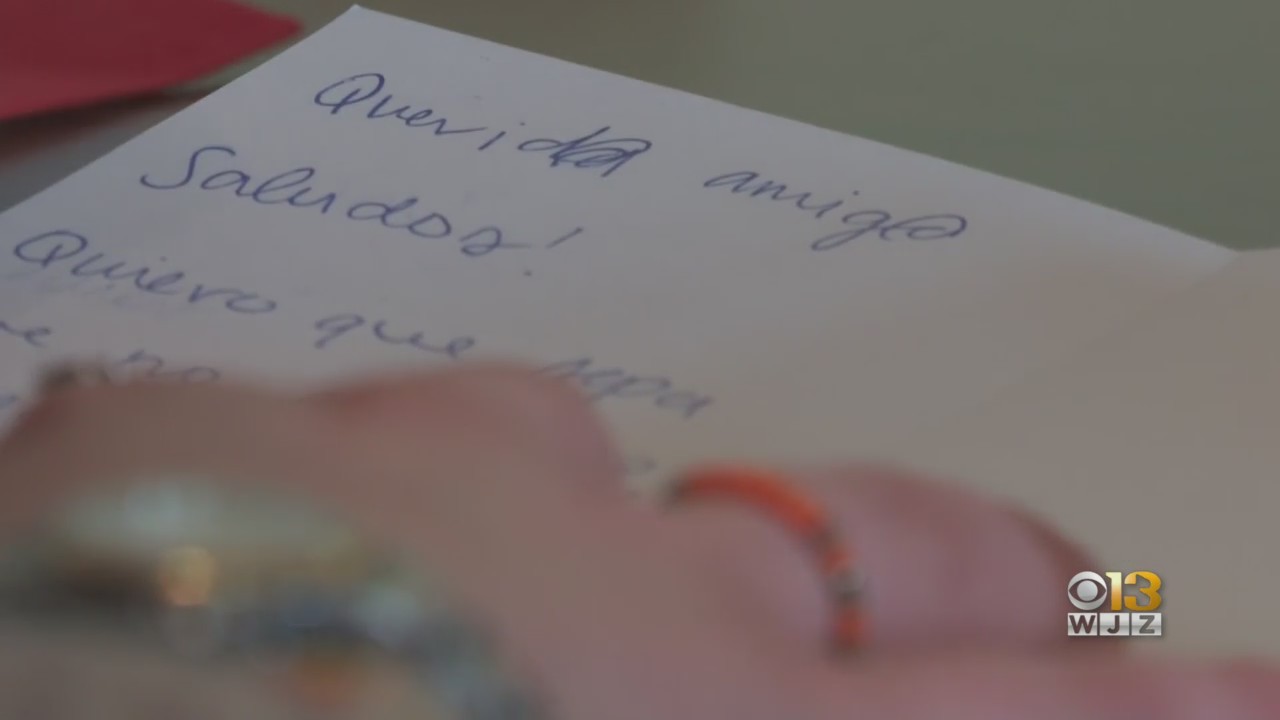 Querid@ amig@
Saludos!
Quiero que sepa
e no
13
WJZ